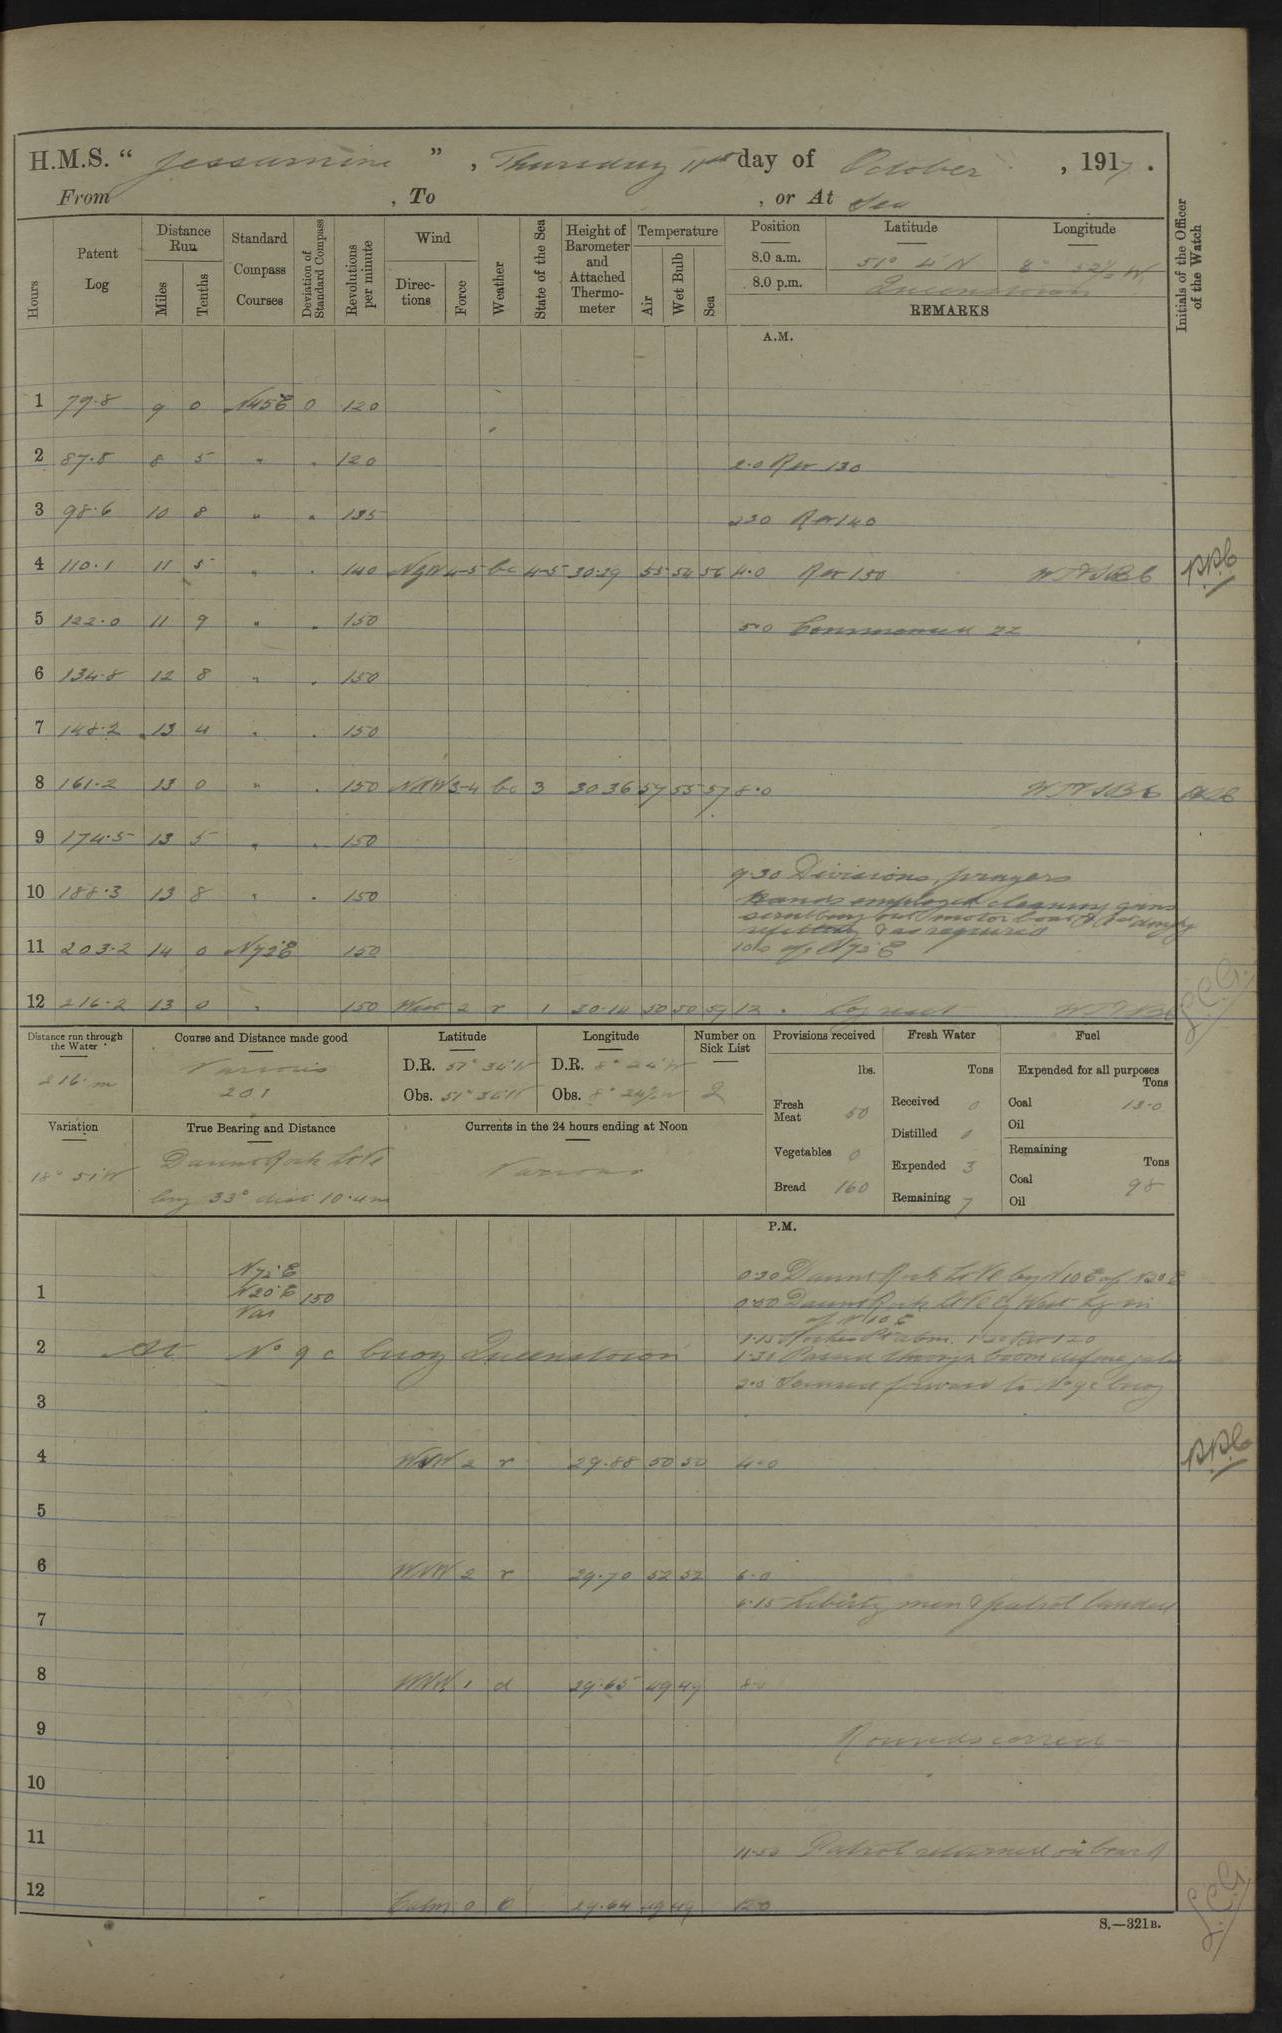 H.M.S. " Jessamine ", Thursday 11th day of October, 1917.
From , To , or At Sea
Hours
Patent Log
Distance Run
Miles
Tenths
Standard Compass Courses
Deviation of Standard Compass
Revolutions per minute
Wind
Directions
Force
Weather
State of the Sea
Height of Barometer and Attached Thermometer
Temperature
Air
Wet Bulb
Sea
Position
Latitude
Longitude
8.0 a.m. 51° 4' N 8° 52½ W
8.0 p.m. Queenstown
REMARKS
Initials of the Officer of the Watch
A.M.
1 79.8 9 0 N45E 0 120
2 87.8 8 5 " . 120 2.0 Rev 130
3 98.6 10 8 " " 135 230 Rev 140
4 110.1 11 5 " . 140 NxW 4-5 bc 4-5 30.29 55 54 56 4.0 Rev 150
5 122.0 11 9 " . 150 5.0 Commenced ZZ
6 134.8 12 8 " . 150
7 148.2 13 4 " . 150
8 161.2 13 0 " . 150 NNW 3-4 bc 3 30.36 57 55 57 8.0
9 174.5 13 5 " . 150
9.30 Divisions, prayers
10 188.3 13 8 " . 150
Hands employed cleaning guns
scrubbing out motor boat &
refitting & as required
11 203.2 14 0 N72E 150
12 216.2 13 0 " 150 West 2 r 1 30.14 50 50 57 12. Log reset
Distance run through the Water
216 m
Course and Distance made good
Various
201
Latitude
D.R. 51° 36' N
Obs. 51° 36' N
Longitude
D.R. 8° 24' W
Obs. 8° 24½ W
Number on Sick List
2
Provisions received
lbs.
Fresh Meat 50
Vegetables 0
Bread 160
Fresh Water
Tons
Received 0
Distilled 0
Expended 3
Remaining 7
Fuel
Expended for all purposes
Tons
Coal 13.0
Oil
Remaining
Tons
Coal 98
Oil
Variation
18° 51 W
True Bearing and Distance
Daunt Rock Lt Ve
brg 33° dist 10.4 m
Currents in the 24 hours ending at Noon
Various
P.M.
N72E
0.20 Daunt Rock Lt Ve brg N10E
1 N20E 150
Var
0.50 Daunt Rock Lt Ve brg West
N10E
1.30 Passed through boom defence
2 At No 9c buoy Queenstown
2.0 Secured forward to No 9c buoy
3
4 WNW 2 r 29.88 50 50 4.0
5
6 WNW 2 r 29.70 52 52 6.0
6.15 Liberty men & patrol landed
7
8 WNW 1 d 29.65 49 49 8.0
9 Rounds correct
10
11 Patrol returned on board
12 Calm 0 29.64 49 49 12.0
S.—321B.